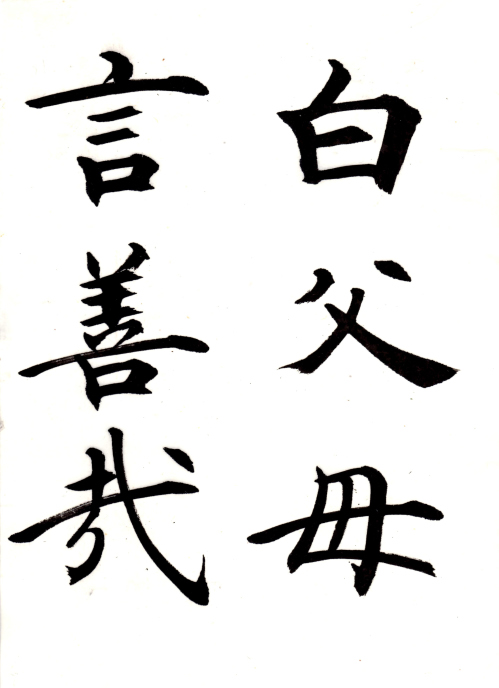 白父母
言善哉